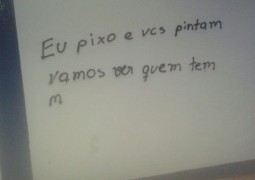 Eu pixo e vcs pintam
vamos ver quem tem
m